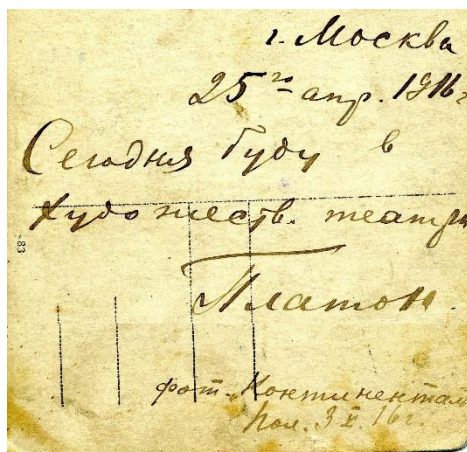 г. Москва
25го апр. 1916 г
Сегодня буду в
Художеств. театре
Платон.
фот. Континенталь
Пол. 3 X. 16 г.
83